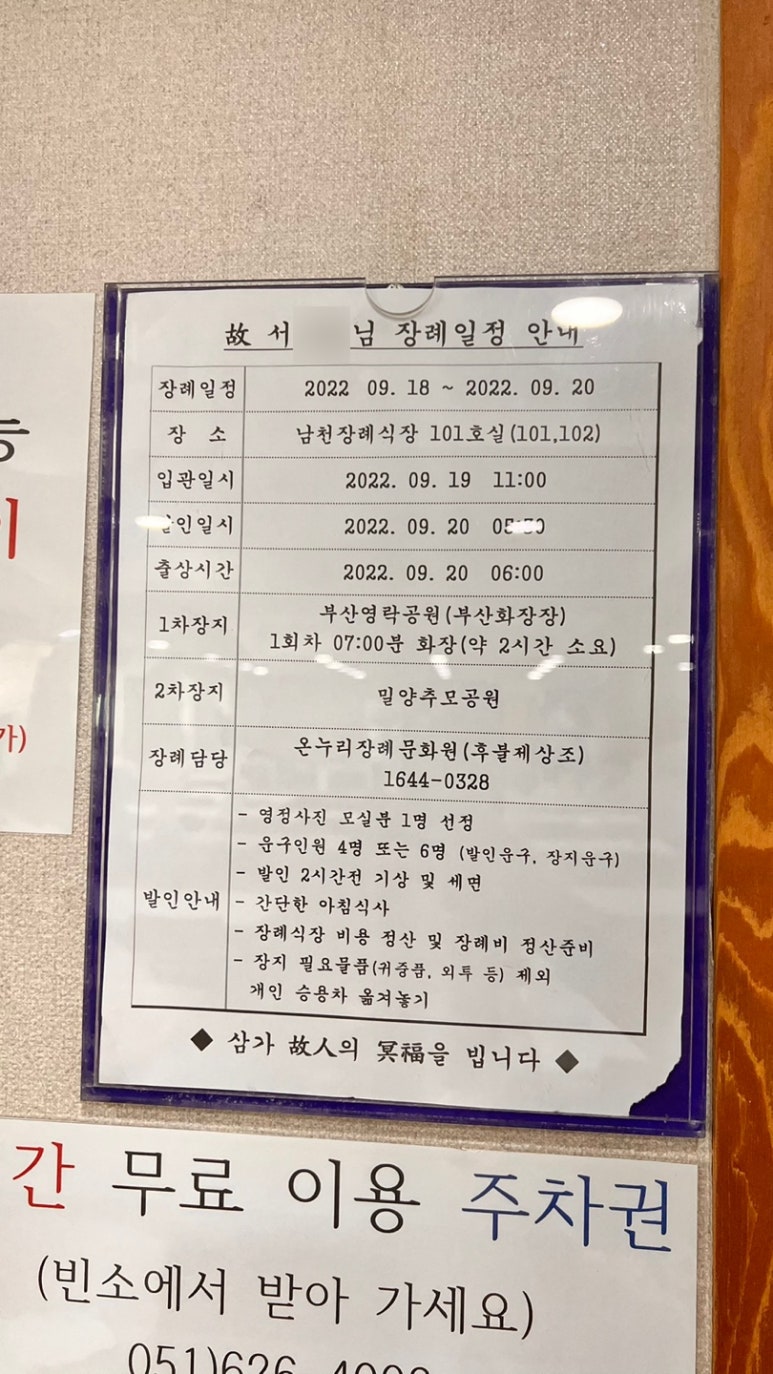 故 서 님 장례일정 안내
장례일정 2022 09. 18 ~ 2022. 09. 20
장 소 남천장례식장 101호실(101,102)
입관일시 2022. 09. 19 11:00
발인일시 2022. 09. 20
출상시간 2022. 09. 20 06:00
1차장지 부산영락공원(부산화장장)
1회차 07:00분 화장(약 2시간 소요)
2차장지 밀양추모공원
장례담당 온누리장례문화원(후불제상조)
1644-0328
발인안내
- 영정사진 모실분 1명 선정
- 운구인원 4명 또는 6명 (발인운구, 장지운구)
- 발인 2시간전 기상 및 세면
- 간단한 아침식사
- 장례식장 비용 정산 및 장례비 정산준비
- 장지 필요물품(귀중품, 외투 등) 제외
개인 승용차 옮겨놓기
◆ 삼가 故人의 冥福을 빕니다 ◆
가)
간 무료 이용 주차권
(빈소에서 받아 가세요)
051)626